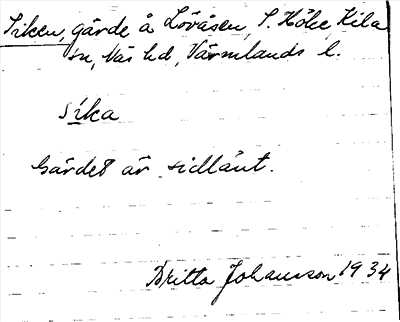 Siken, gärde å Lövåsen, S. Höke, Kila
sn, Näs hd, Värmlands l.
sika
Gärdet är sidlänt.
Britta Johansson 1934